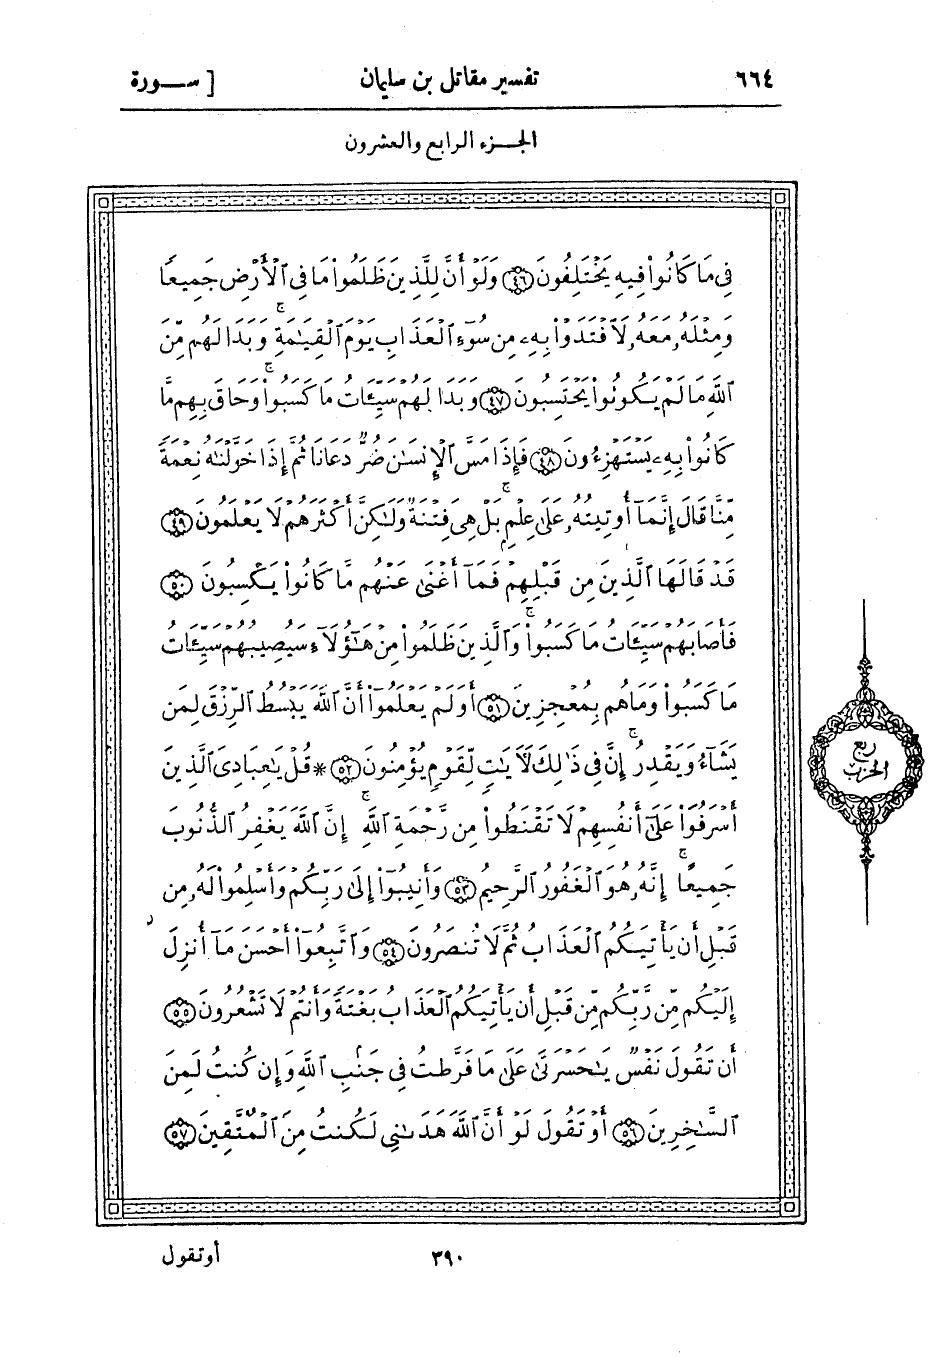 ٦٦٤ تفسير مقاتل بن سليمان [ ســـورة
الجـــزء الرابع والعشرون
فِى مَا كَانُوا۟ فِيهِ يَخْتَلِفُونَ ٤٦ وَلَوْ أَنَّ لِلَّذِينَ ظَلَمُوا۟ مَا فِى ٱلْأَرْضِ جَمِيعًا
وَمِثْلَهُۥ مَعَهُۥ لَٱفْتَدَوْا۟ بِهِۦ مِن سُوٓءِ ٱلْعَذَابِ يَوْمَ ٱلْقِيَٰمَةِ ۚ وَبَدَا لَهُم مِّنَ
ٱللَّهِ مَا لَمْ يَكُونُوا۟ يَحْتَسِبُونَ ٤٧ وَبَدَا لَهُمْ سَيِّـَٔاتُ مَا كَسَبُوا۟ ۚ وَحَاقَ بِهِم مَّا
كَانُوا۟ بِهِۦ يَسْتَهْزِءُونَ ٤٨ فَإِذَا مَسَّ ٱلْإِنسَٰنَ ضُرٌّ دَعَانَا ثُمَّ إِذَا خَوَّلْنَٰهُ نِعْمَةً
مِّنَّا قَالَ إِنَّمَآ أُوتِيتُهُۥ عَلَىٰ عِلْمٍۭ ۚ بَلْ هِىَ فِتْنَةٌ وَلَٰكِنَّ أَكْثَرَهُمْ لَا يَعْلَمُونَ ٤٩
قَدْ قَالَهَا ٱلَّذِينَ مِن قَبْلِهِمْ فَمَآ أَغْنَىٰ عَنْهُم مَّا كَانُوا۟ يَكْسِبُونَ ٥٠
فَأَصَابَهُمْ سَيِّـَٔاتُ مَا كَسَبُوا۟ ۚ وَٱلَّذِينَ ظَلَمُوا۟ مِنْ هَٰٓؤُلَآءِ سَيُصِيبُهُمْ سَيِّـَٔاتُ
مَا كَسَبُوا۟ وَمَا هُم بِمُعْجِزِينَ ٥١ أَوَلَمْ يَعْلَمُوٓا۟ أَنَّ ٱللَّهَ يَبْسُطُ ٱلرِّزْقَ لِمَن
يَشَآءُ وَيَقْدِرُ ۚ إِنَّ فِى ذَٰلِكَ لَءَايَٰتٍ لِّقَوْمٍ يُؤْمِنُونَ ٥٢ * قُلْ يَٰعِبَادِىَ ٱلَّذِينَ
أَسْرَفُوا۟ عَلَىٰٓ أَنفُسِهِمْ لَا تَقْنَطُوا۟ مِن رَّحْمَةِ ٱللَّهِ ۚ إِنَّ ٱللَّهَ يَغْفِرُ ٱلذُّنُوبَ
جَمِيعًا ۚ إِنَّهُۥ هُوَ ٱلْغَفُورُ ٱلرَّحِيمُ ٥٣ وَأَنِيبُوٓا۟ إِلَىٰ رَبِّكُمْ وَأَسْلِمُوا۟ لَهُۥ مِن
قَبْلِ أَن يَأْتِيَكُمُ ٱلْعَذَابُ ثُمَّ لَا تُنصَرُونَ ٥٤ وَٱتَّبِعُوٓا۟ أَحْسَنَ مَآ أُنزِلَ
إِلَيْكُم مِّن رَّبِّكُم مِّن قَبْلِ أَن يَأْتِيَكُمُ ٱلْعَذَابُ بَغْتَةً وَأَنتُمْ لَا تَشْعُرُونَ ٥٥
أَن تَقُولَ نَفْسٌ يَٰحَسْرَتَىٰ عَلَىٰ مَا فَرَّطتُ فِى جَنۢبِ ٱللَّهِ وَإِن كُنتُ لَمِنَ
ٱلسَّٰخِرِينَ ٥٦ أَوْ تَقُولَ لَوْ أَنَّ ٱللَّهَ هَدَىٰنِى لَكُنتُ مِنَ ٱلْمُتَّقِينَ ٥٧
ربع
الحزب
٣٩٠ أو تقول